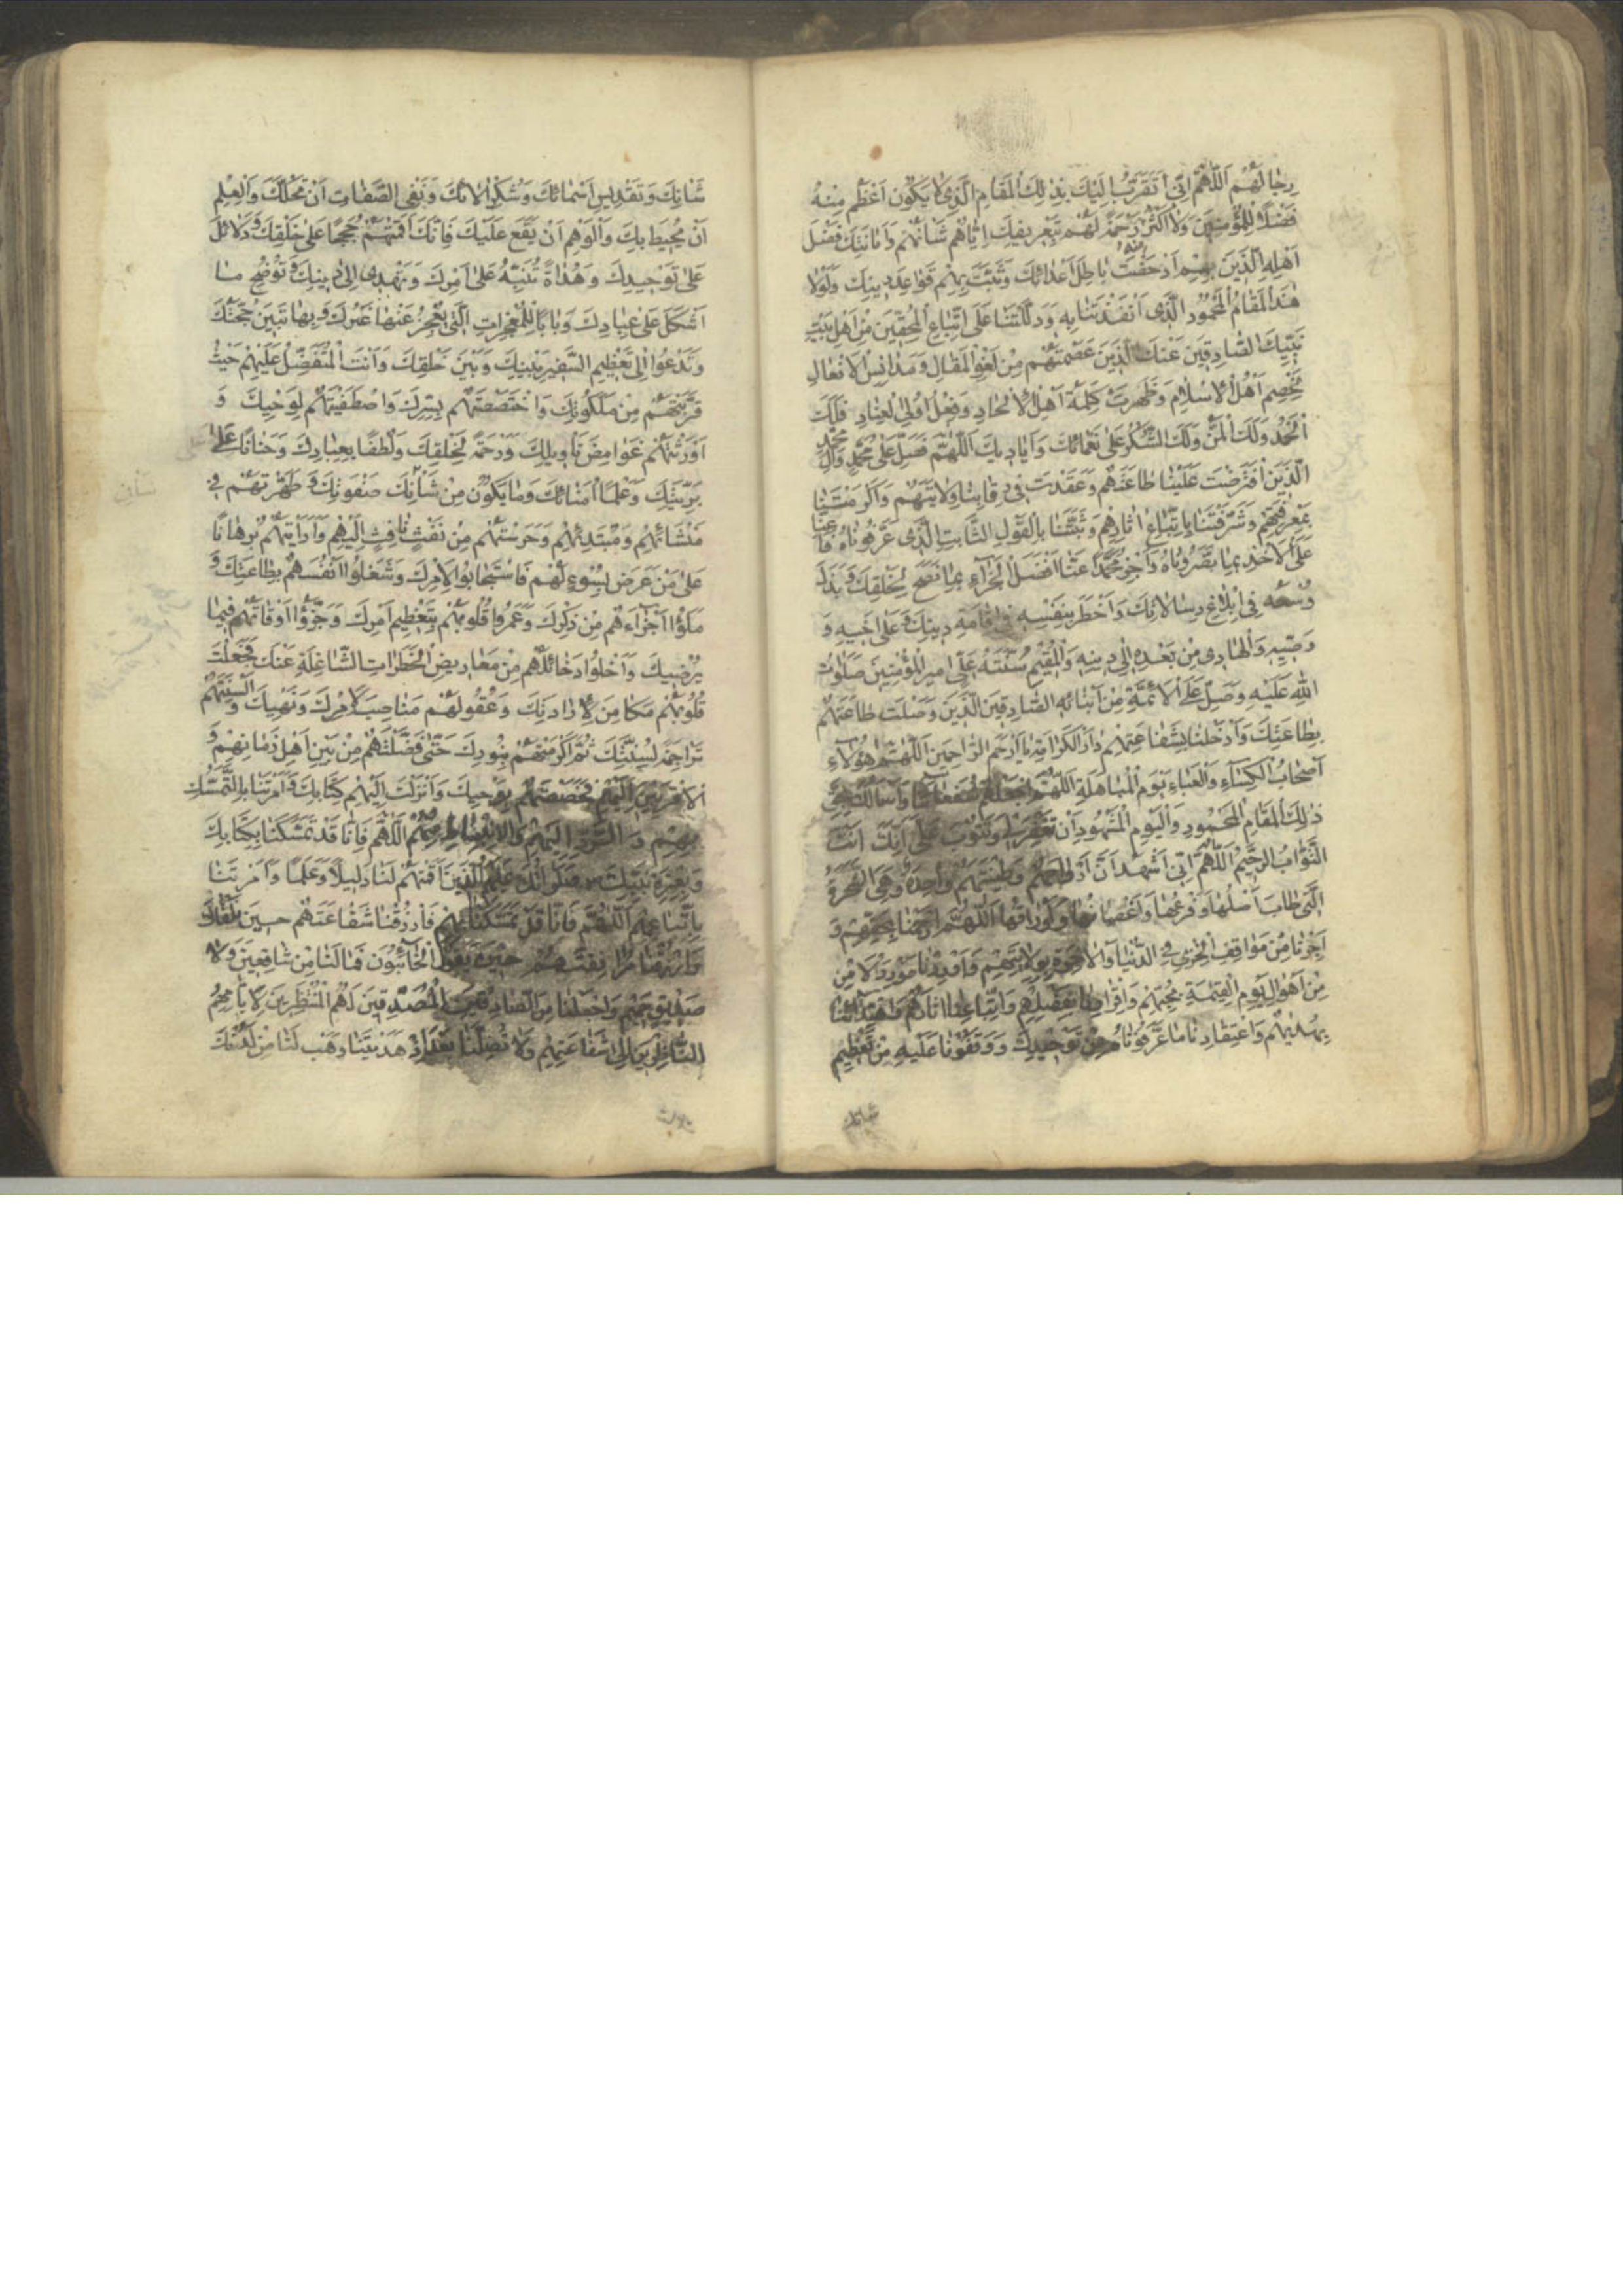 رِجَالَهُمْ اَللّٰهُمَّ اِنّي اَتَقَرَّبُ اِلَيْكَ بِذٰلِكَ الْمَقَامِ الَّذي لَا يَكُونُ اَعْظَمَ مِنْهُ
فَضْلاً لِلْمُؤْمِنِينَ وَلَا اَكْثَرَ رَحْمَةً لَهُمْ بِتَعْرِيفِكَ اِيَّاهُمْ شَاْنَهُمْ وَاِبَانَتِكَ فَضْلَ
اَهْلِهِ الَّذِينَ بِهِمْ اَدْحَضْتَ بَاطِلَ اَعْدَائِكَ وَثَبَّتَّ بِهِمْ قَوَاعِدَ دِينِكَ وَلَوْلَا
هٰذَا الْمَقَامُ الْمَحْمُودُ الَّذي اَنْقَذْتَنَا بِهِ وَدَلَلْتَنَا عَلَى اتِّبَاعِ الْمُحِقِّينَ مِنْ اَهْلِ بَيْتِ
نَبِيِّكَ الصَّادِقِينَ عَنْكَ الَّذِينَ عَصَمْتَهُمْ مِنْ لَغْوِ الْمَقَالِ وَمَدَانِسِ الْاَفْعَالِ
لَخُصِمَ اَهْلُ الْاِسْلَامِ وَظَهَرَتْ كَلِمَةُ اَهْلِ الْاِلْحَادِ وَفِعْلُ اُولِي الْعِنَادِ فَلَكَ
الْحَمْدُ وَلَكَ الْمَنُّ وَلَكَ الشُّكْرُ عَلَى نَعْمَائِكَ وَاَيَادِيكَ اَللّٰهُمَّ فَصَلِّ عَلَى مُحَمَّدٍ وَآلِ مُحَمَّدٍ
الَّذِينَ افْتَرَضْتَ عَلَيْنَا طَاعَتَهُمْ وَعَقَدْتَ فِي رِقَابِنَا وِلَايَتَهُمْ وَاَكْرَمْتَنَا
بِمَعْرِفَتِهِمْ وَشَرَّفْتَنَا بِاتِّبَاعِ اٰثَارِهِمْ وَثَبَّتَّنَا بِالْقَوْلِ الثَّابِتِ الَّذي عَرَّفُونَاهُ فَاَعِنَّا
عَلَى الْاَخْذِ بِمَا بَصَّرُونَاهُ وَاَجْزِ مُحَمَّدًا عَنَّا اَفْضَلَ الْجَزَاءِ بِمَا نَصَحَ لِخَلْقِكَ وَبَذَلَ
وُسْعَهُ فِي اِبْلَاغِ رِسَالَاتِكَ وَاَخْطَرَ بِنَفْسِهِ فِي اِقَامَةِ دِينِكَ وَعَلَى اَخِيهِ وَ
وَصِيِّهِ وَالْهَادِي مِنْ بَعْدِهِ اِلَى دِينِهِ وَالْمُقِيمِ سُنَّتَهُ عَلِيٍّ اَمِيرِ الْمُؤْمِنِينَ صَلَوَاتُ
اللّٰهِ عَلَيْهِ وَصَلِّ عَلَى الْاَئِمَّةِ مِنْ اَبْنَائِهِ الصَّادِقِينَ الَّذِينَ وَصَلْتَ طَاعَتَهُمْ
بِطَاعَتِكَ وَاَدْخِلْنَا بِشَفَاعَتِهِمْ دَارَ كَرَامَتِكَ يَا اَرْحَمَ الرَّاحِمِينَ اَللّٰهُمَّ هٰؤُلَاءِ
اَصْحَابُ الْكِسَاءِ وَالْعَبَاءِ يَوْمَ الْمُبَاهَلَةِ اَللّٰهُمَّ اجْعَلْهُمْ شُفَعَاءَنَا وَاَسْاَلُكَ بِحَقِّ
ذٰلِكَ الْمَقَامِ الْمَحْمُودِ وَالْيَوْمِ الْمَشْهُودِ اَنْ تَغْفِرَ لِي وَتَتُوبَ عَلَيَّ اِنَّكَ اَنْتَ
التَّوَّابُ الرَّحِيمُ اَللّٰهُمَّ اِنّي اَشْهَدُ اَنَّ اَرْوَاحَهُمْ وَطِينَتَهُمْ وَاحِدَةٌ وَهِيَ الشَّجَرَةُ
الَّتِي طَابَ اَصْلُهَا وَفَرْعُهَا وَاَغْصَانُهَا وَاَوْرَاقُهَا اَللّٰهُمَّ ارْحَمْنَا بِحَقِّهِمْ وَ
اَجِرْنَا مِنْ مَوَاقِفِ الْخِزْيِ فِي الدُّنْيَا وَالْاٰخِرَةِ بِوِلَايَتِهِمْ وَاَوْرِدْنَا مَوَارِدَ الْاَمْنِ
مِنْ اَهْوَالِ يَوْمِ الْقِيٰمَةِ بِحُبِّهِمْ وَاِقْرَارِنَا بِفَضْلِهِمْ وَاتِّبَاعِنَا اٰثَارَهُمْ وَاهْتِدَائِنَا
بِهُدَاهُمْ وَاعْتِقَادِنَا مَا عَرَّفُونَاهُ مِنْ تَوْحِيدِكَ وَوَقَّفُونَا عَلَيْهِ مِنْ تَعْظِيمِ
شانك
شَانِكَ وَتَقْدِيسِ اَسْمَائِكَ وَشُكْرِ اٰلَائِكَ وَنَفْيِ الصِّفَاتِ اَنْ تَحُلَّكَ وَالْعِلْمِ
اَنْ يُحِيطَ بِكَ وَالْوَهْمِ اَنْ يَقَعَ عَلَيْكَ فَاِنَّكَ اَقَمْتَهُمْ حُجَجًا عَلَى خَلْقِكَ وَدَلَائِلَ
عَلَى تَوْحِيدِكَ وَهُدَاةً تُنَبِّهُ عَلَى اَمْرِكَ وَتَهْدِي اِلَى دِينِكَ وَتُوضِحُ مَا
اَشْكَلَ عَلَى عِبَادِكَ وَبَابًا لِلْمُعْجِزَاتِ الَّتِي يَعْجِزُ عَنْهَا غَيْرُكَ وَبِهَا تَبَيَّنُ حُجَّتُكَ
وَتَدْعُوا اِلَى تَعْظِيمِ السَّفِيرِ بَيْنَكَ وَبَيْنَ خَلْقِكَ وَاَنْتَ الْمُتَفَضِّلُ عَلَيْهِمْ حَيْثُ
قَرَّبْتَهُمْ مِنْ مَلَكُوتِكَ وَاخْتَصَصْتَهُمْ بِسِرِّكَ وَاصْطَفَيْتَهُمْ لِوَحْيِكَ وَ
اَوْرَثْتَهُمْ غَوَامِضَ تَاْوِيلِكَ رَحْمَةً لِخَلْقِكَ وَلُطْفًا بِعِبَادِكَ وَحَنَانًا عَلَى
بَرِيَّتِكَ وَعِلْمًا بِمَا تَنْطَوي عليه ضمائر اُمَنَائِكَ وَمَا يَكُونُ مِنْ شَاْنِ صَفْوَتِكَ وَطَهَّرْتَهُمْ فِي
مَنْشَائِهِمْ وَمُبْتَدَئِهِمْ وَحَرَسْتَهُمْ مِنْ نَفْثِ نَافِثٍ اِلَيْهِمْ وَاَرَيْتَهُمْ بُرْهَانًا
عَلَى مَنْ عَرَضَ بِسُوءٍ لَهُمْ فَاسْتَجَابُوا لِاَمْرِكَ وَشَغَلُوا اَنْفُسَهُمْ بِطَاعَتِكَ وَ
مَلَؤُا اَجْزَاءَهُمْ مِنْ ذِكْرِكَ وَعَمَرُوا قُلُوبَهُمْ بِتَعْظِيمِ اَمْرِكَ وَجَزَّؤُا اَوْقَاتَهُمْ فِيمَا
يُرْضِيكَ وَاَخْلَوْا دَخَائِلَهُمْ مِنْ مَعَارِيضِ الْخَطَرَاتِ الشَّاغِلَةِ عَنْكَ فَجَعَلْتَ
قُلُوبَهُمْ مَكَامِنَ لِاِرَادَتِكَ وَعُقُولَهُمْ مَنَاصِبَ لِاَمْرِكَ وَنَهْيِكَ وَاَلْسِنَتَهُمْ
تَرَاجِمَةً لِسُنَّتِكَ ثُمَّ اَكْرَمْتَهُمْ بِنُورِكَ حَتَّى فَضَّلْتَهُمْ مِنْ بَيْنِ اَهْلِ زَمَانِهِمْ وَ
الْاَقْرَبِينَ اِلَيْهِمْ فَخَصَصْتَهُمْ بِوَحْيِكَ وَاَنْزَلْتَ اِلَيْهِمْ كِتَابَكَ وَاَمَرْتَنَا بِالتَّمَسُّكِ
بِهِمْ وَالرَّدِّ اِلَيْهِمْ وَالْاِسْتِنْبَاطِ مِنْهُمْ اَللّٰهُمَّ فَاِنَّا قَدْ تَمَسَّكْنَا بِكِتَابِكَ
وَبِعِتْرَةِ نَبِيِّكَ صَلَوَاتُكَ عَلَيْهِمُ الَّذِينَ اَقَمْتَهُمْ لَنَا دَلِيلاً وَعَلَمًا وَاَمَرْتَنَا
بِاتِّبَاعِهِمْ اَللّٰهُمَّ فَاِنَّا قَدْ تَمَسَّكْنَا بِهِمْ فَارْزُقْنَا شَفَاعَتَهُمْ حِينَ
يَقُولُ الْخَائِبُونَ فَمَا لَنَا مِنْ شَافِعِينَ وَلَا
صَدِيقٍ حَمِيمٍ وَاجْعَلْنَا مِنَ الصَّادِقِينَ الْمُصَدِّقِينَ لَهُمُ الْمُنْتَظِرِينَ لِاَيَّامِهِمُ
النَّاظِرِينَ اِلَى شَفَاعَتِهِمْ وَلَا تُضِلَّنَا بَعْدَ اِذْ هَدَيْتَنَا وَهَبْ لَنَا مِنْ لَدُنْكَ